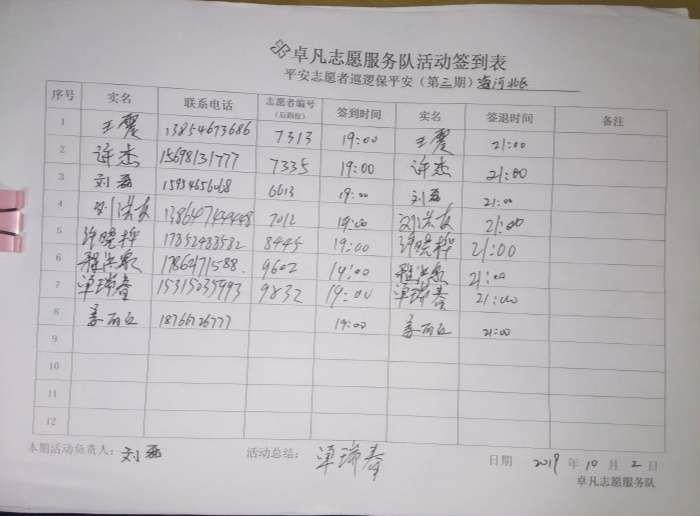 卓凡志愿服务队活动签到表
平安志愿者巡逻保平安（第三期）
序号 实名 联系电话 志愿者编号（后四位） 签到时间 实名 签退时间 备注
1 王震 13854673686 7313 19:00 王震 21:00
2 许杰 15698131777 7335 19:00 许杰 21:00
3 刘磊 6613 19:00 刘磊 21:00
4 刘洪友 7012 19:00 刘洪友 21:00
5 许晓梅 17352483582 8445 19:00 许晓梅 21:00
6 1786471588 9602 19:00 21:00
7 卓瑞春 15315035993 9832 19:00 卓瑞春 21:00
8 18766726777 19:00 21:00
9
10
11
12
本期活动负责人：刘磊 活动总结：卓瑞春 日期 2019 年 10 月 2 日
卓凡志愿服务队